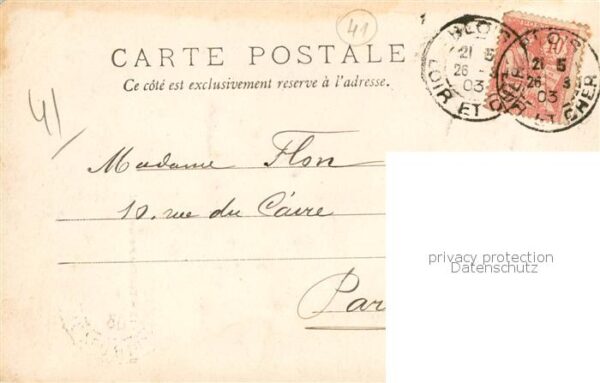 41
CARTE POSTALE
Ce côté est exclusivement reserve à l'adresse.
BLOIS
21 5
26 3
03
LOIR ET CHER
BLOIS
21 5
26 3
03
LOIR ET CHER
10
41
Madame Flon
12, rue du Caire
Par
privacy protection
Datenschutz